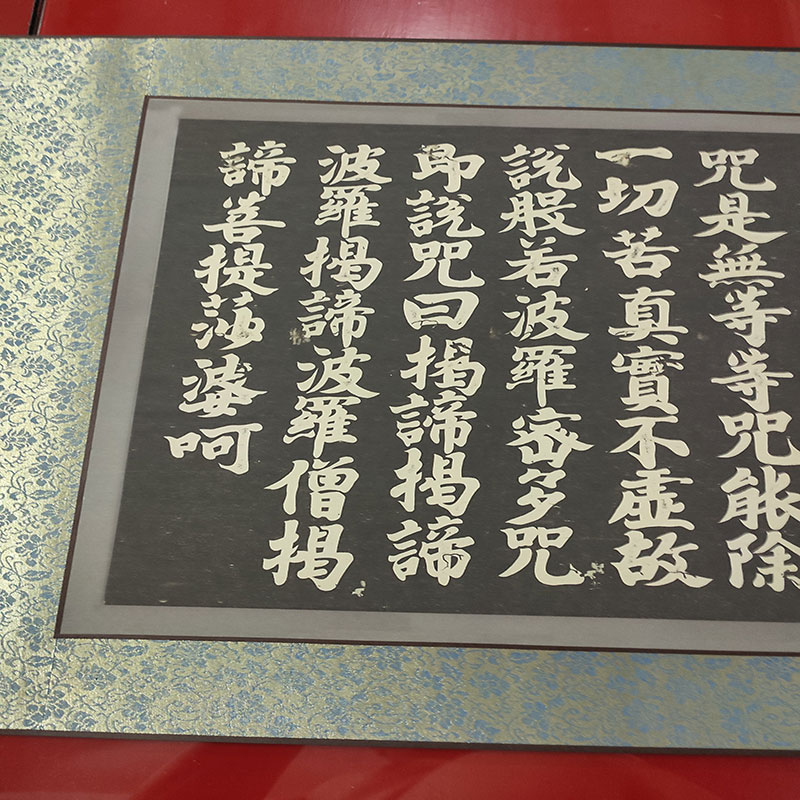 咒是無等等咒能除
一切苦真實不虛故
説般若波羅蜜多咒
即説咒曰揭諦揭諦
波羅揭諦波羅僧揭
諦菩提莎婆呵